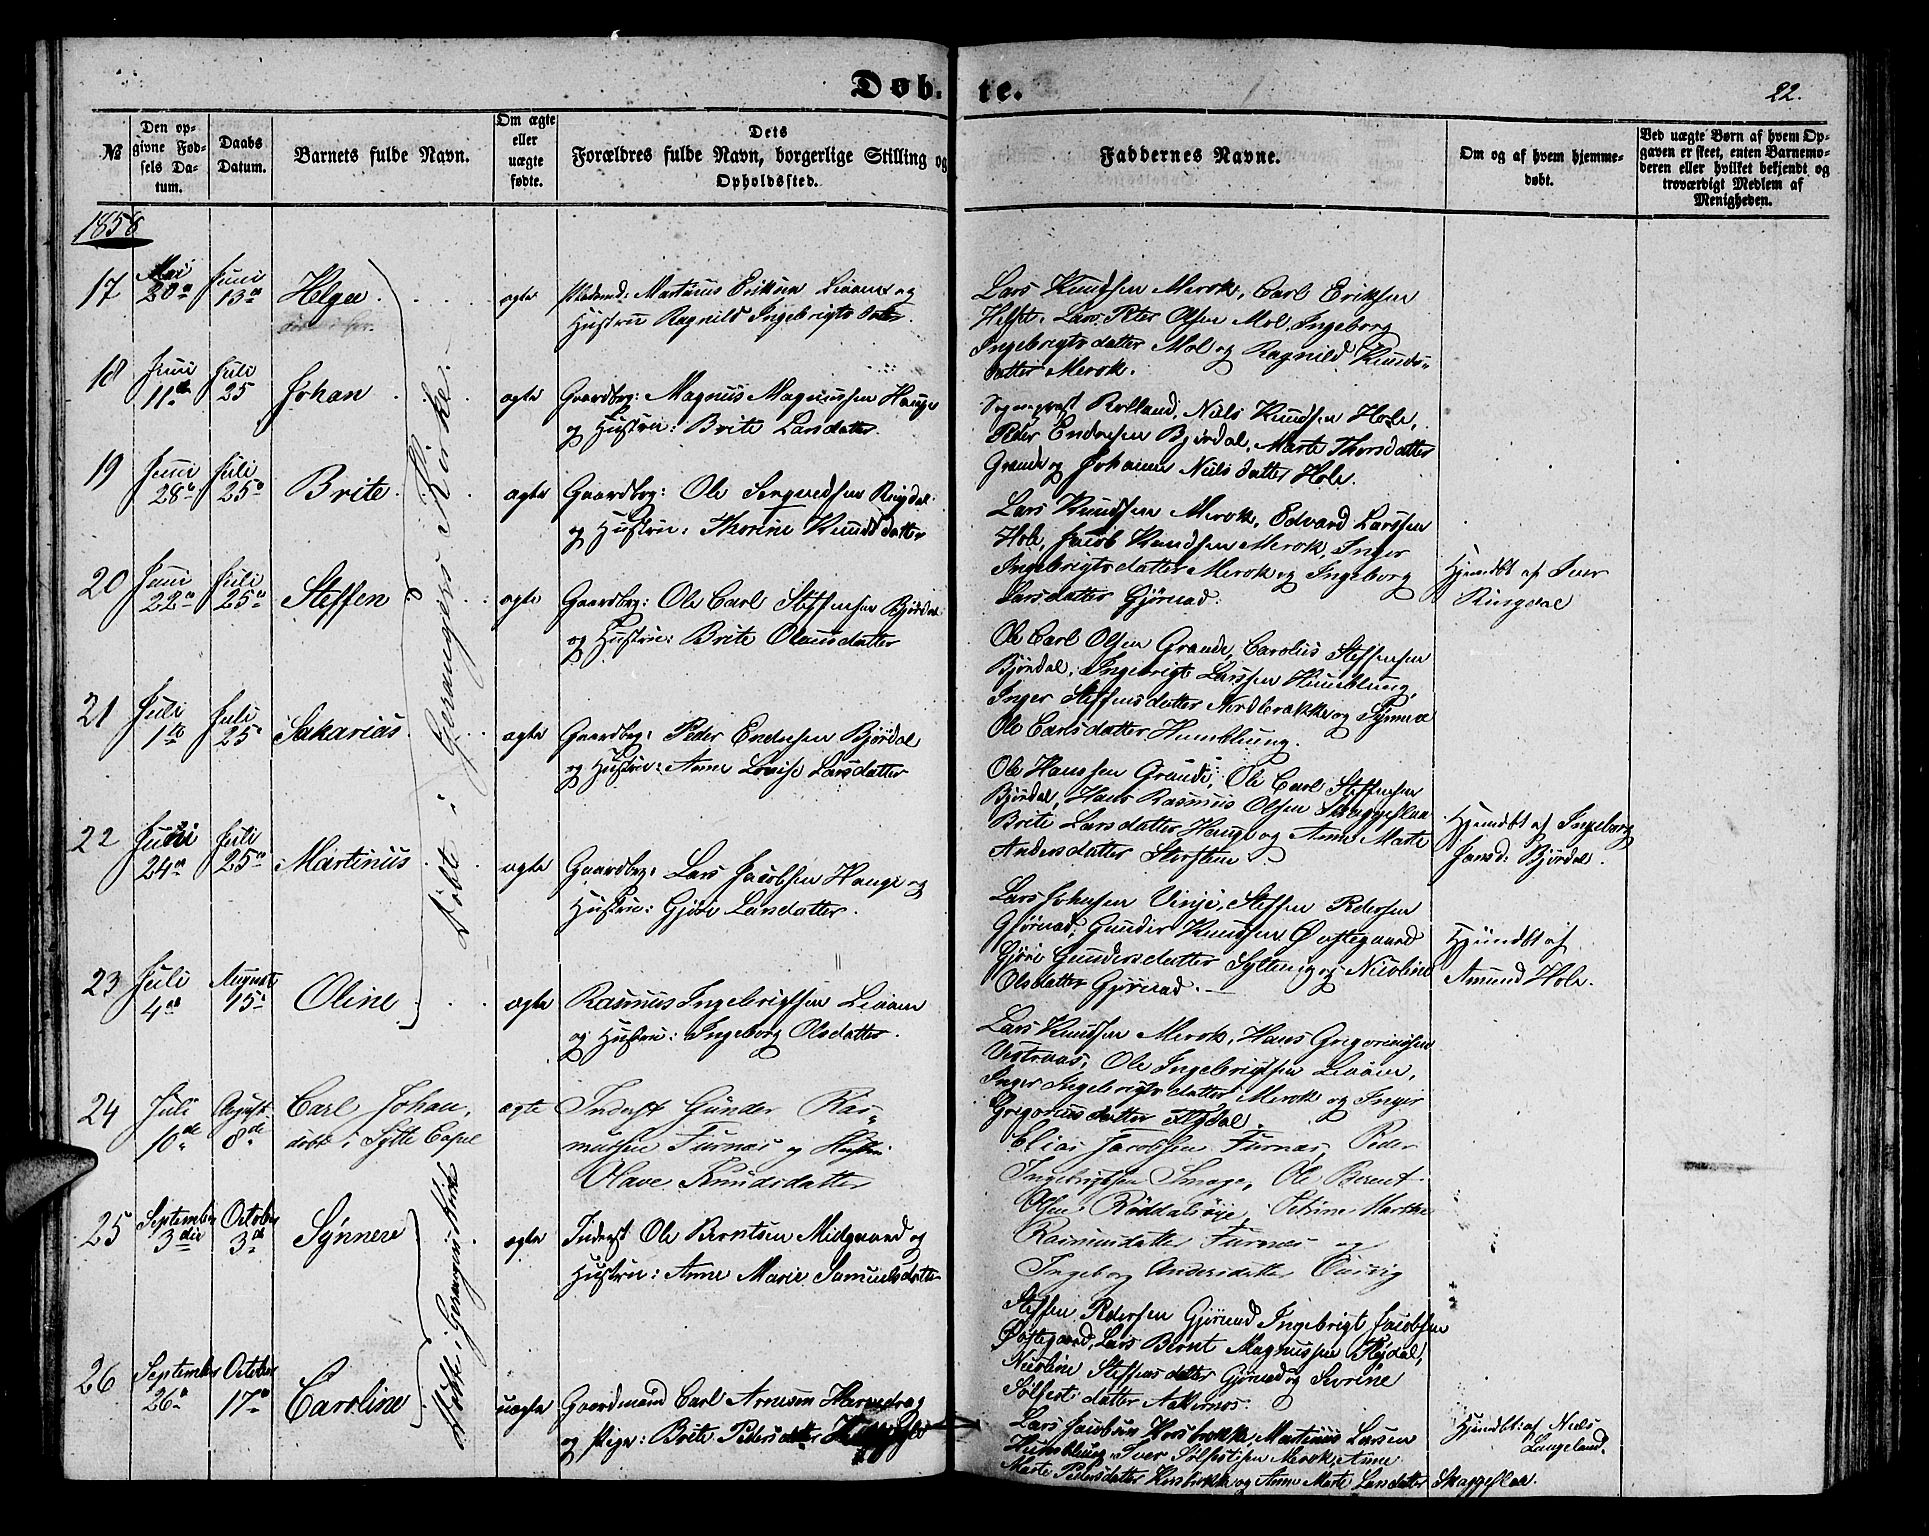 Døb-
te.
22.
№
Den op-
givne Fød-
sels Da-
tum.
Daabs
Datum.
Barnets fulde Navn.
Om ægte
eller
uægte
fødte.
Dets
Forældres fulde Navn, borgerlige Stilling og
Opholdssted.
Faddernes Navne.
Om og af hvem hjemme-
døbt.
Ved uægte Børn af hvem Op-
gaven er skeet, enten Barnemo-
deren eller hvilket bekjendt og
troværdigt Medlem af
Menigheden.
1858
17
Mai
20
Juni
13
Helga
ægte
Martinus Eriksen Liaam og
Hustru Ragnild Ingebrigtsdatter.
Lars Knudsen Merok, Carl Eriksen
Lars Peter Olsen Mol, Ingeborg
Ingebrigtsdatter Mol og Ragnild Knuds-
datter Merok.
18
Juni
11te
Juli
25
Johan
ægte
Gaardbrg: Magnus Magnussen Hauge
og Hustru: Brite Larsdatter.
Sogneprest Rolland, Niels Knudsen Hole,
Peder Endresen Bjørdal, Marte Thorsdatter
Grande og Johanne Nielsdatter Hole.
19
Juni
28
Juli
25
Brite
ægte
Gaardbrg: Ole Ringdal
og Hustru: Thorine Knudsdatter
Lars Knudsen Merok, Edvard Larssen
Hole, Jacob Knudsen Merok, Inger
Ingebrigtsdatter Merok og Ingeborg
Larsdatter Gjørvad.
20
Juni
22
Juli
25
Steffen
ægte
Gaardbrg: Ole Carl Steffensen Bjørdal
og Hustru: Brite Olausdatter
Hjemdbt af Iver
Ringdal
Ole Carl Olsen Grande, Carolus Steffensen
Bjørdal, Ingebrigt Larssen Humblung,
Inger Steffensdatter og Synneve
Ole Carlsdatter Humblung.
21
Juli
1
Juli
25
Sakarias
ægte
Gaardbrg: Peder Endresen Bjørdal
og Hustru: Anne Lovise Larsdatter
Ole Hanssen Grande, Ole Carl Steffensen
Bjørdal, Hans Rasmus Olsen Skaggeflaa
Brite Larsdatter Hauge og Anne Marte
Andersdatter
22
Juni
24
Juli
25
Martinus
ægte
Gaardbrg: Lars Jacobsen Hauge og
Hustru: Gjøri Larsdatter.
Hjemdbt af Ingeborg
Jansd: Bjørdal.
Lars Johnsen Vinje, Steffen Pedersen
Gjørvad, Gunder Knudsen Østegaard
Gjøri Gundersdatter Sylteng og Nicoline
Olsdatter Gjørvad.
Døbt i Gerangers Kirke.
23
Juli
4de
August
15
Oline
ægte
Rasmus Ingebrigtsen Liaam
og Hustru: Ingeborg Olsdatter.
Hjemdbt af
Amund Hole.
Lars Knudsen Merok, Hans Gregoriussen
Vestraas, Ole Ingebrigtsen Liaam,
Inger Ingebrigtsdatter Merok og Inger
Gregoriusdatter Flydal.
24
Juli
10de
August
8de
Carl Johan,
døbt i Sylte Capel
ægte
Inderst Gunder Ras-
mussen Furnæs og Hustru
Olave Knudsdatter
Elias Jacobsen Furnæs, Peder
Ingebrigtsen Smoge, Ole Berent
Olsen Røddalsøye, Petrine Marthe
Rasmusdatter Furnæs og
Ingeborg Andersdatter
25
September
3die
October
3de
Synnere
ægte
Inderst Ole Berntsen Midgaard og
Hustru: Anne Marie Samuelsdatter
Steffen Pedersen Gjørvad, Ingebrigt Jacobsen
Østegaard, Lars Bernt Magnussen Flydal,
Nicoline Steffensdatter Gjørvad og Severine
Sølfestdatter Aakernæs.
26
September
26
October
17
Caroline
uægte
Gaardmand Carl Arnesen
og Pige: Brite Pedersdatter
Døbte i Gerangers Kirke
Lars Jacobsen Korsbrekke, Martinus Larsen
Humblung, Iver Sølfestsen Merok, Anne
Marte Pedersdatter Korsbrekke og Anne Marte Larsdatter Skaggeflaa.
Hjemdbt: af Niels
Langeland.